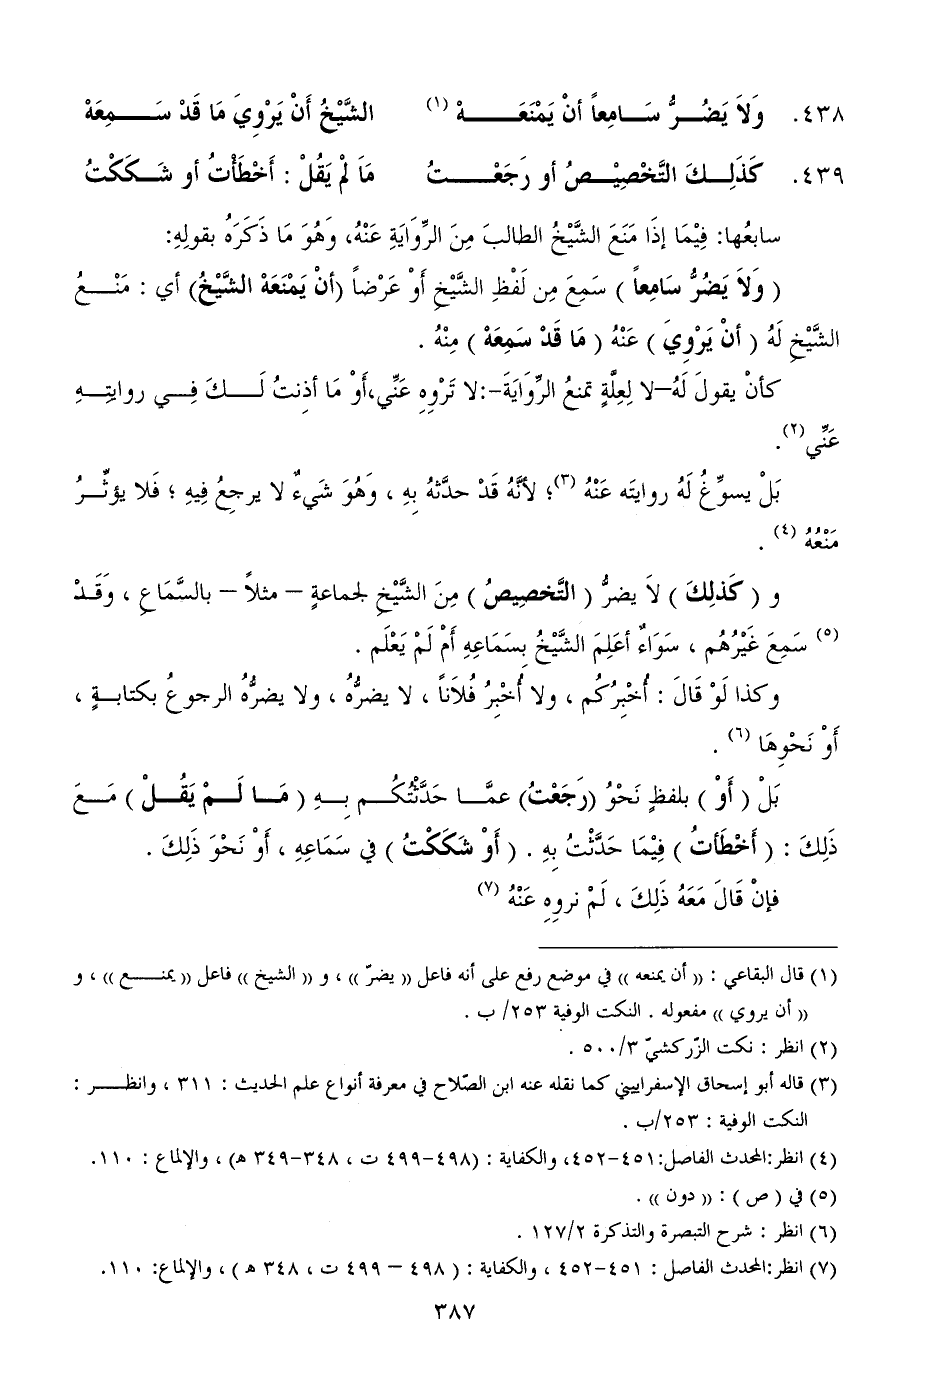 ٤٣٨. وَلاَ يَضُـــرُّ سَـامِعاً أنْ يَمْنَعَـــــهْ (١) الشَّيْخُ أَنْ يَرْوِيَ مَا قَدْ سَــــمِعَهْ
٤٣٩. كَذَلِـــكَ التَّخْصِيْــصُ أو رَجَعْـــــتُ مَا لَمْ يَقُلْ : أَخْطَأْتُ أو شَـــكَكْتُ
سابعُها: فِيْمَا إذَا مَنَعَ الشَّيْخُ الطالبَ مِنَ الرِّوَايَةِ عَنْهُ، وَهُوَ مَا ذَكَرَهُ بقولِهِ:
( وَلاَ يَضُرُّ سَامِعاً ) سَمِعَ مِن لَفْظِ الشَّيْخِ أَوْ عَرْضاً (أنْ يَمْنَعَهْ الشَّيْخُ) أي : مَنْــــعُ
الشَّيْخِ لَهُ ( أنْ يَرْوِيَ ) عَنْهُ ( مَا قَدْ سَمِعَهْ ) مِنْهُ .
كأنْ يقولَ لَهُ–لا لِعِلَّةٍ تمنعُ الرِّوَايَةَ–:لا تَرْوِهِ عَنِّي،أَوْ مَا أذنتُ لَـــكَ فِـــي روايتِـــهِ
عَنِّي(٢).
بَلْ يسوِّغُ لَهُ روايتَه عَنْهُ (٣)؛ لأنَّهُ قَدْ حدَّثهُ بِهِ ، وَهُوَ شَيءٌ لا يرجعُ فِيهِ ؛ فَلا يؤثِّـــرُ
مَنْعُهُ (٤) .
و ( كَذلِكَ ) لاَ يضرُّ ( التَّخصِيصُ ) مِنَ الشَّيْخِ لجماعةٍ – مثلاً – بالسَّمَاعِ ، وَقَـدْ
(٥) سَمِعَ غَيْرُهُم ، سَوَاءٌ أعَلِمَ الشَّيْخُ بِسَمَاعِهِ أَمْ لَمْ يَعْلَم .
وكذا لَوْ قَالَ : أُخْبِرُكُم ، ولا أُخْبِرُ فُلاَناً ، لا يضرُّهُ ، ولا يضرُّهُ الرجوعُ بكتابـةٍ ،
أَوْ نَحْوِهَا (٦) .
بَلْ ( أَوْ ) بلفظٍ نَحْوُ (رَجَعْتُ) عمَّـا حَدَّثْتُكُـــم بِـــهِ ( مَـــا لَـــمْ يَقُـــلْ ) مَـعَ
ذَلِكَ : ( أَخْطَأتُ ) فِيْمَا حَدَّثْتُ بِهِ . ( أَوْ شَكَكْتُ ) في سَمَاعِهِ ، أَوْ نَحْوَ ذَلِكَ .
فإنْ قَالَ مَعَهُ ذَلِكَ ، لَمْ نروِهِ عَنْهُ (٧)
(١) قال البقاعي : (( أن يمنعه )) في موضع رفع على أنه فاعل (( يضرّ )) ، و (( الشيخ )) فاعل (( يمنـــع )) ، و
(( أن يروي )) مفعوله . النكت الوفية ٢٥٣/ ب .
(٢) انظر : نكت الزّركشيّ ٥٠٠/٣ .
(٣) قاله أبو إسحاق الإسفراييني كما نقله عنه ابن الصّلاح في معرفة أنواع علم الحديث : ٣١١ ، وانظـــر :
النكت الوفية : ٢٥٣/ب .
(٤) انظر:المحدث الفاصل:٤٥١-٤٥٢، والكفاية : (٤٩٨-٤٩٩ ت ، ٣٤٨-٣٤٩ هـ) ، والإلماع : ١١٠.
(٥) في ( ص ) : (( دون )) .
(٦) انظر : شرح التبصرة والتذكرة ١٢٧/٢ .
(٧) انظر:المحدث الفاصل : ٤٥١-٤٥٢ ، والكفاية : ( ٤٩٨ – ٤٩٩ ت ، ٣٤٨ هـ ) ، والإلماع: ١١٠.
٣٨٧